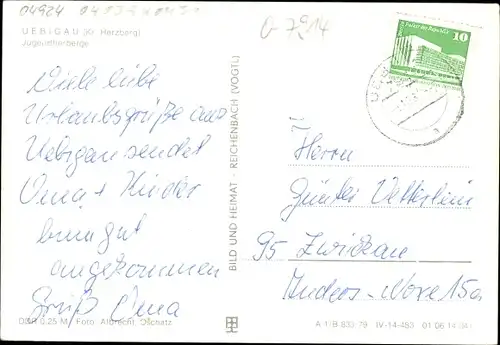 04924
UEBIGAU (Kr. Herzberg)
Jugendherberge
Viele liebe
Urlaubsgrüße aus
Uebigau sendet
Oma + Kinder
gut
angekommen
Gruß Oma
DDR 0,25 M Foto: Albrecht, Oschatz
BILD UND HEIMAT · REICHENBACH (VOGTL)
Palast der Republik
10
Herrn
Günter Vetterlein
95 Zwickau
15a
A 1/B 833/79 IV-14-483 01 06 14 041